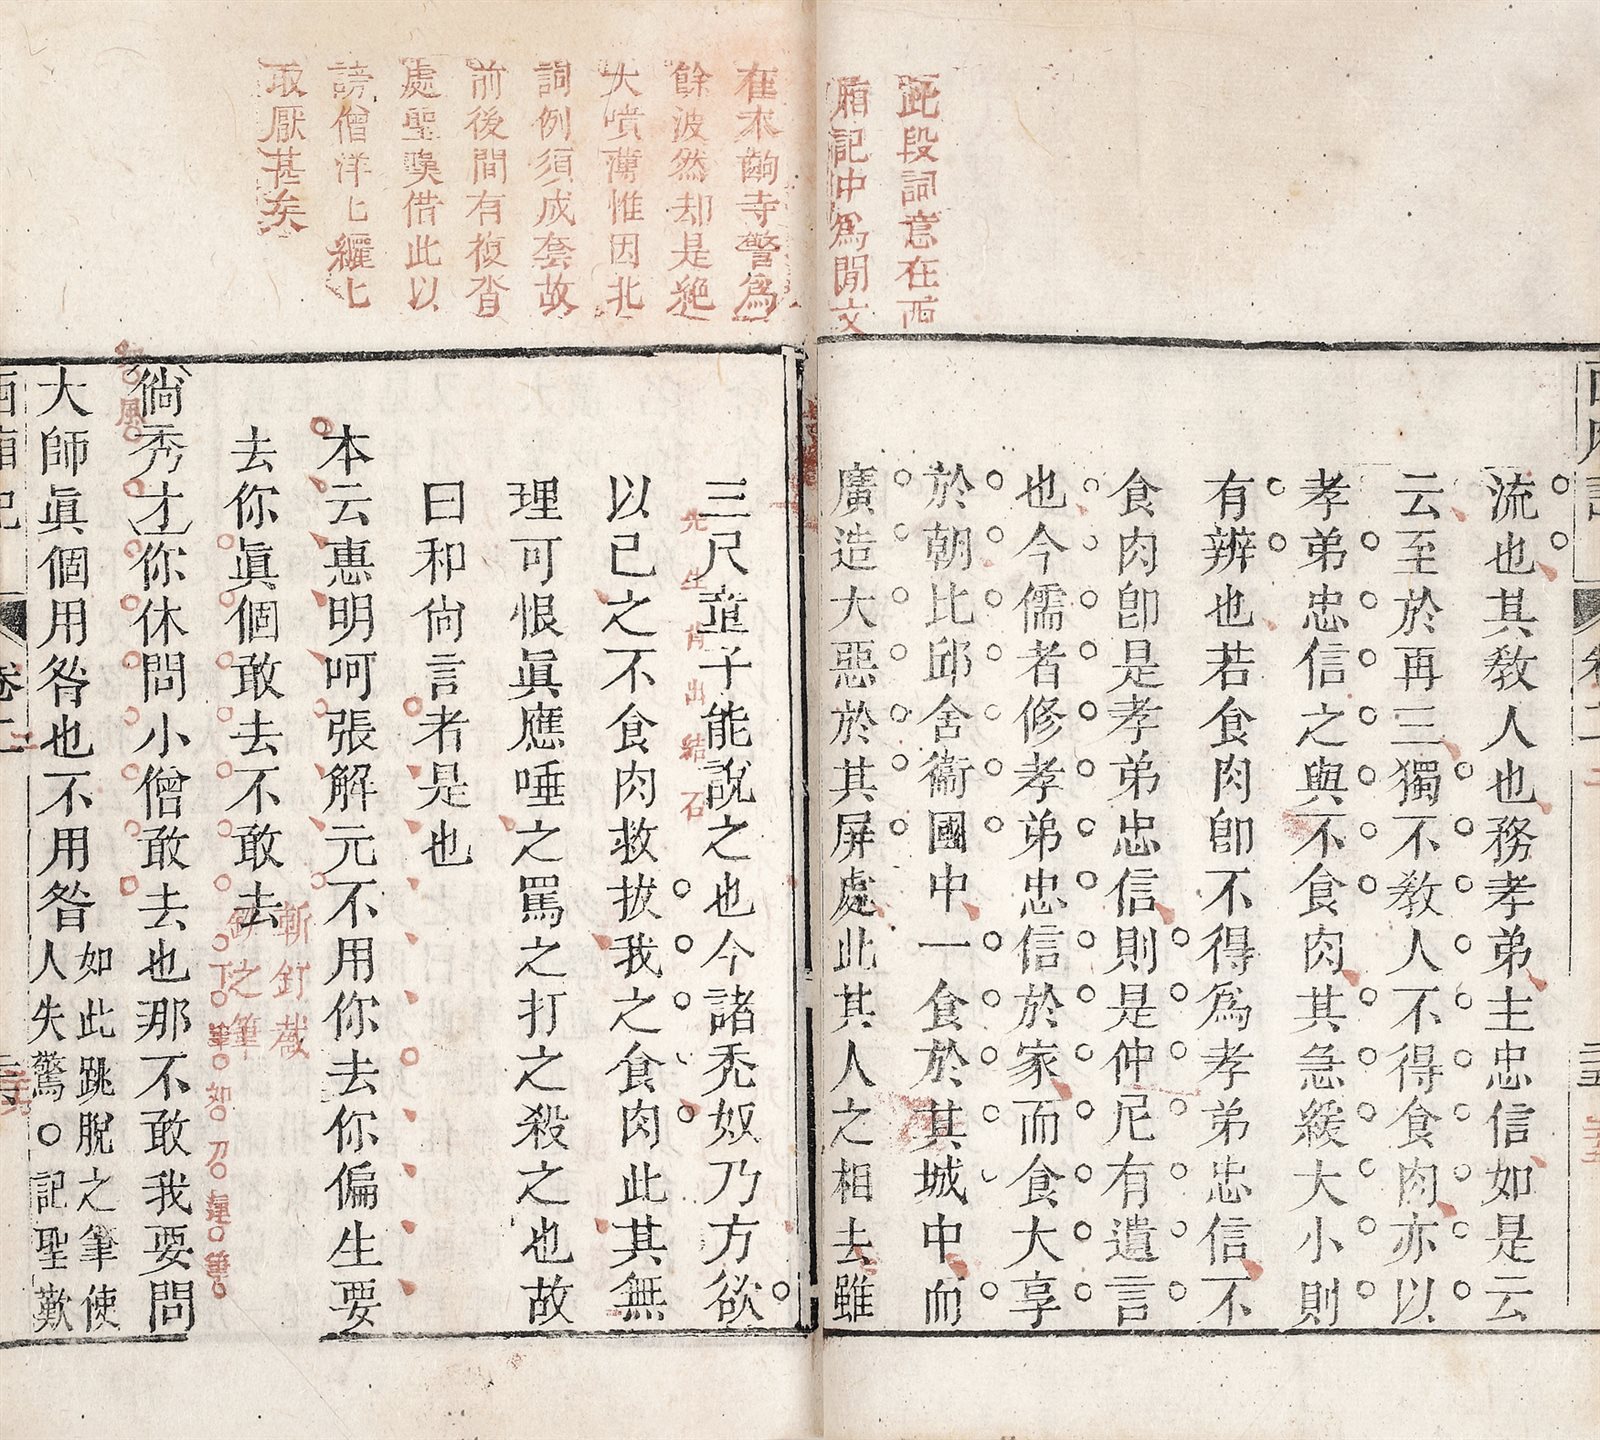 此段詞意在西
廂記中爲閒文
流也其敎人也務孝弟主忠信如是云
云至於再三獨不敎人不得食肉亦以
孝弟忠信之與不食肉其急緩大小則
有辨也若食肉卽不得爲孝弟忠信不
食肉卽是孝弟忠信則是仲尼有遺言
也今儒者修孝弟忠信於家而食大享
於朝比邱舍衞國中一食於其城中而
廣造大惡於其屏處此其人之相去雖
在木齣寺警爲
餘波然却是絕
大噴薄惟因北
詞例須成套故
前後間有複沓
處聖嘆借此以
謗僧洋七纚七
取厭甚矣
三尺童子能說之也今諸禿奴乃方欲
先生肯出結石
以已之不食肉救拔我之食肉此其無
理可恨眞應唾之罵之打之殺之也故
曰和尙言者是也
本云惠明呵張解元不用你去你偏生要
去你眞個敢去不敢去
斬釘截
鉄之筆
倘秀才你休問小僧敢去也那不敢我要問
大師眞個用咎也不用咎
如此跳脫之筆使
人失驚○記聖歎
西廂記
卷二